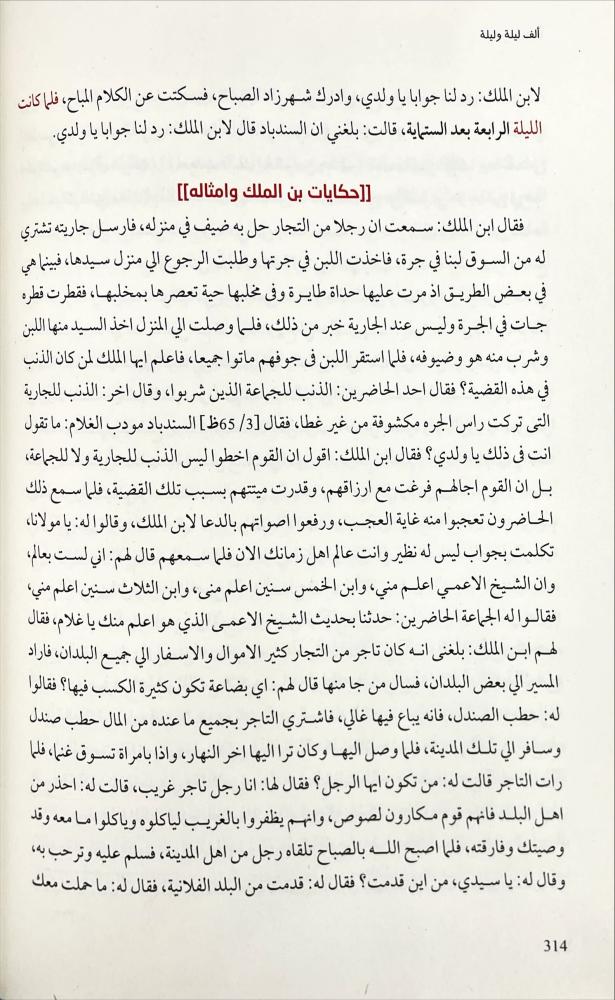 ألف ليلة وليلة
لابن الملك: رد لنا جوابا يا ولدي، وادرك شهرزاد الصباح، فسكتت عن الكلام المباح، فلما كانت
الليلة الرابعة بعد الستماية، قالت: بلغني ان السندباد قال لابن الملك: رد لنا جوابا يا ولدي.
[[حكايات بن الملك وامثاله]]
فقال ابن الملك: سمعت ان رجلا من التجار حل به ضيف في منزله، فارسل جاريته تشتري
له من السوق لبنا في جرة، فاخذت اللبن في جرتها وطلبت الرجوع الي منزل سيدها، فبينما هي
في بعض الطريق اذ مرت عليها حداة طايرة وفى مخلبها حية تعصرها بمخلبها، فقطرت قطره
جات في الجرة وليس عند الجارية خبر من ذلك، فلما وصلت الي المنزل اخذ السيد منها اللبن
وشرب منه هو وضيوفه، فلما استقر اللبن فى جوفهم ماتوا جميعا، فاعلم ايها الملك لمن كان الذنب
في هذه القضية؟ فقال احد الحاضرين: الذنب للجماعة الذين شربوا، وقال اخر: الذنب للجارية
التى تركت راس الجره مكشوفة من غير غطا، فقال [3/ 65ظ] السندباد مودب الغلام: ما تقول
انت فى ذلك يا ولدي؟ فقال ابن الملك: اقول ان القوم اخطوا ليس الذنب للجارية ولا للجماعة،
بل ان القوم اجالهم فرغت مع ارزاقهم، وقدرت ميتتهم بسبب تلك القضية، فلما سمع ذلك
الحاضرون تعجبوا منه غاية العجب، ورفعوا اصواتهم بالدعا لابن الملك، وقالوا له: يا مولانا،
تكلمت بجواب ليس له نظير وانت عالم اهل زمانك الان فلما سمعهم قال لهم: اني لست بعالم،
وان الشيخ الاعمي اعلم مني، وابن الخمس سنين اعلم منى، وابن الثلاث سنين اعلم مني،
فقالوا له الجماعة الحاضرين: حدثنا بحديث الشيخ الاعمى الذي هو اعلم منك يا غلام، فقال
لهم ابن الملك: بلغنى انه كان تاجر من التجار كثير الاموال والاسفار الي جميع البلدان، فاراد
المسير الي بعض البلدان، فسال من جا منها قال لهم: اي بضاعة تكون كثيرة الكسب فيها؟ فقالوا
له: حطب الصندل، فانه يباع فيها غالي، فاشتري التاجر بجميع ما عنده من المال حطب صندل
وسافر الي تلك المدينة، فلما وصل اليها وكان ترا اليها اخر النهار، واذا بامراة تسوق غنما، فلما
رات التاجر قالت له: من تكون ايها الرجل؟ فقال لها: انا رجل تاجر غريب، قالت له: احذر من
اهل البلد فانهم قوم مكارون لصوص، وانهم يظفروا بالغريب لياكلوه وياكلوا ما معه وقد
وصيتك وفارقته، فلما اصبح الله بالصباح تلقاه رجل من اهل المدينة، فسلم عليه وترحب به،
وقال له: يا سيدي، من اين قدمت؟ فقال له: قدمت من البلد الفلانية، فقال له: ما حملت معك
314